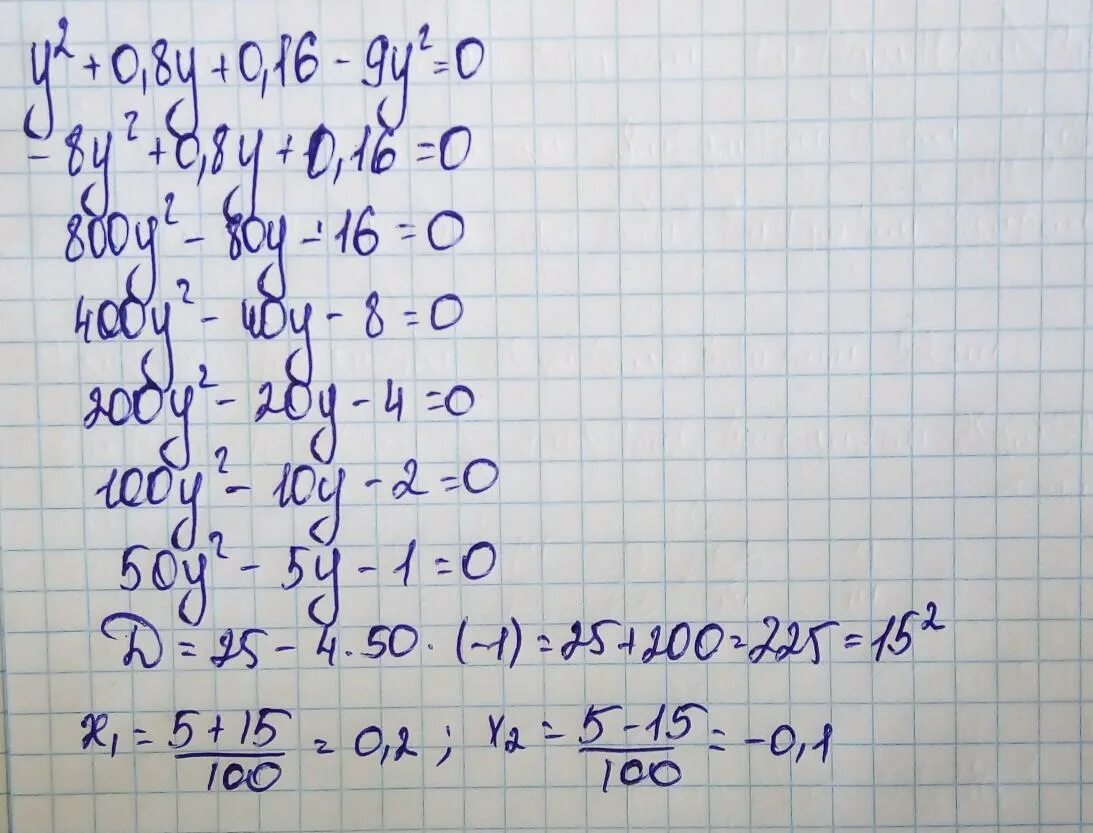 y² + 0,8y + 0,16 - 9y² = 0
-8y² + 0,8y + 0,16 = 0
800y² - 80y - 16 = 0
400y² - 40y - 8 = 0
200y² - 20y - 4 = 0
100y² - 10y - 2 = 0
50y² - 5y - 1 = 0
D = 25 - 4·50·(-1) = 25+200 = 225 = 15²
x₁ = (5+15)/100 = 0,2 ; x₂ = (5-15)/100 = -0,1